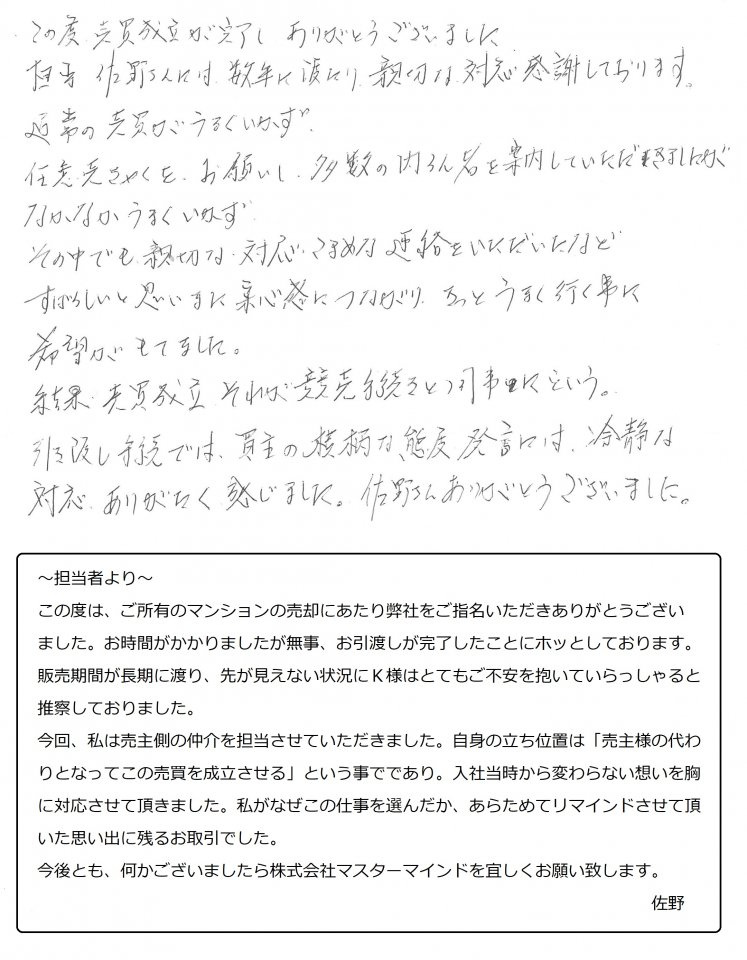 この度 売買成立が完了し ありがとうございました
担当 佐野さんには、数年に渡たり、親切な対応 感謝しております。
通常の売買がうまくいかず、
任意売きゃくを、お願いし、多数の内らん者を案内していただきましたが
なかなかうまくいかず
その中でも、親切な対応、こまめな連絡をいただいたなど
すばらしいと思います に つながり、きっとうまく行く事に
希望がもてました。
結果、売買成立 それが競売手続き という。
引き渡し手続では、買主の横柄な態度、発言には、冷静な
対応、ありがたく感じました。佐野さんありがとうございました。
～担当者より～
この度は、ご所有のマンションの売却にあたり弊社をご指名いただきありがとうござい
ました。お時間がかかりましたが無事、お引渡しが完了したことにホッとしております。
販売期間が長期に渡り、先が見えない状況にＫ様はとてもご不安を抱いていらっしゃると
推察しておりました。
今回、私は売主側の仲介を担当させていただきました。自身の立ち位置は「売主様の代わ
りとなってこの売買を成立させる」という事でであり。入社当時から変わらない想いを胸
に対応させて頂きました。私がなぜこの仕事を選んだか、あらためてリマインドさせて頂
いた思い出に残るお取引でした。
今後とも、何かございましたら株式会社マスターマインドを宜しくお願い致します。
佐野